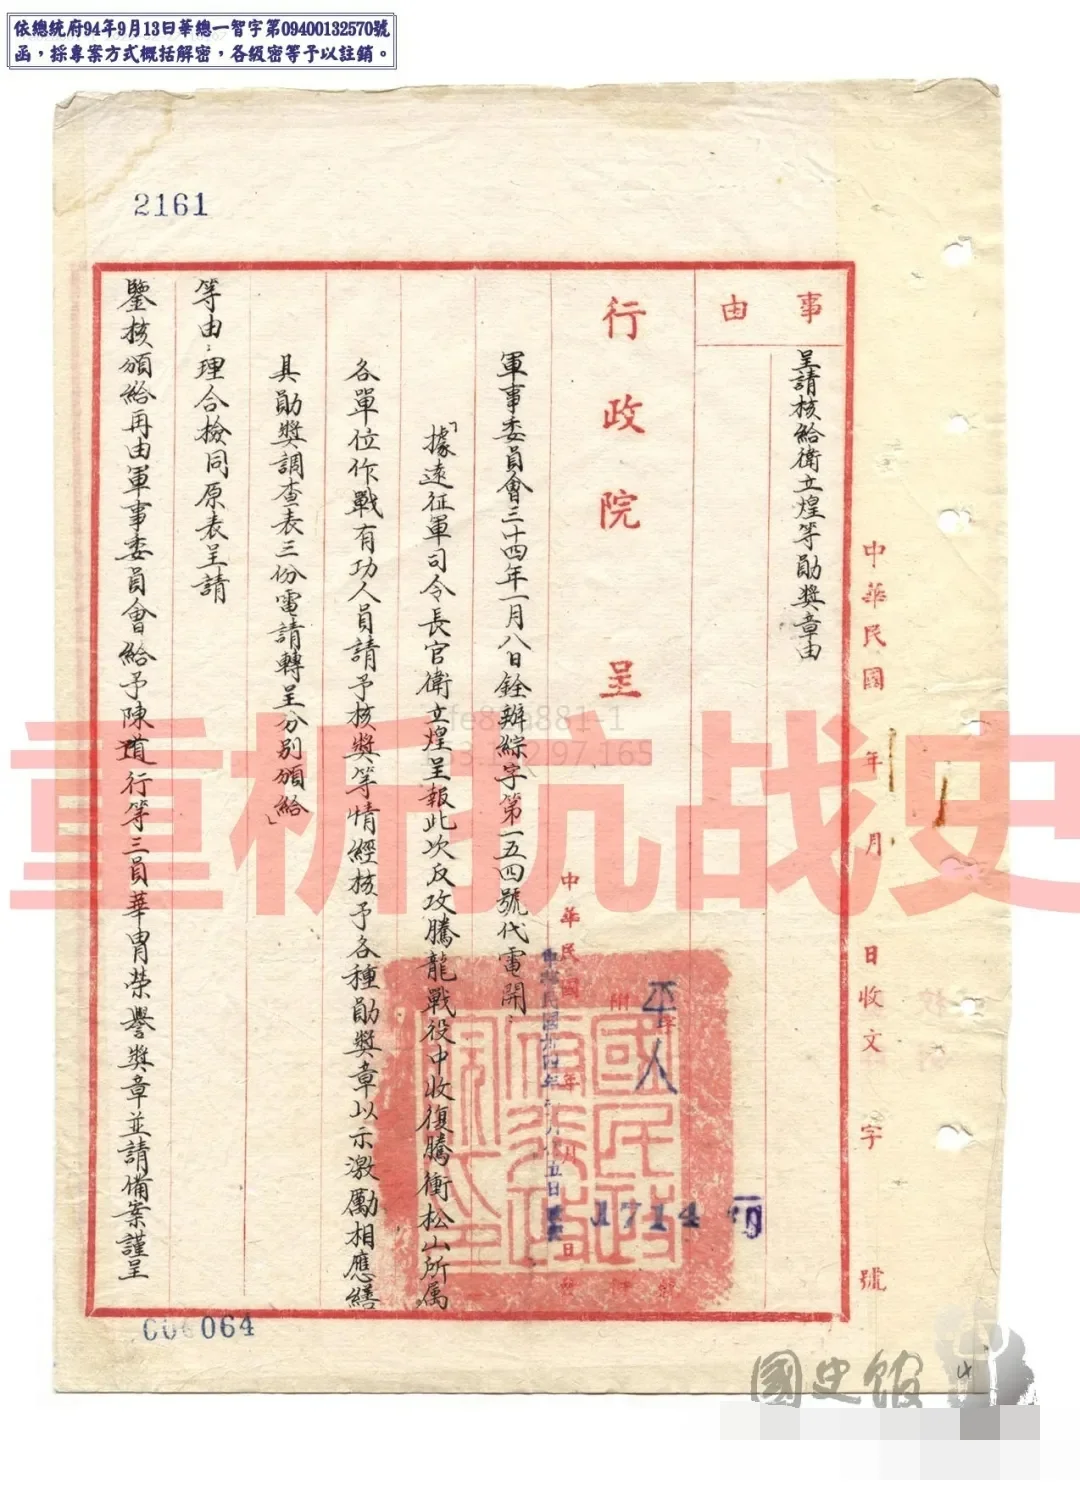 依總統府94年9月13日華總一智字第09400132570號
函，採專案方式概括解密，各級密等予以註銷。
2161
事由
呈請核給衛立煌等勛獎章由
行政院 呈
軍事委員會三十四年一月八日銓辦綜字第一五四號代電開：
「據遠征軍司令長官衛立煌呈報此次反攻騰龍戰役中收復騰衝松山所屬
各單位作戰有功人員請予核獎等情經核予各種勛獎章以示激勵相應繕
具勛獎調查表三份電請轉呈分別頒給」
等由；理合檢同原表呈請
鑒核頒給再由軍事委員會給予陳道行等三員華冑榮譽獎章並請備案謹呈
中華民國 年 月 日收文 字 號
中華民國 年 月 日
平
人
1714
國民政府
064
重析抗战史
國史館
4